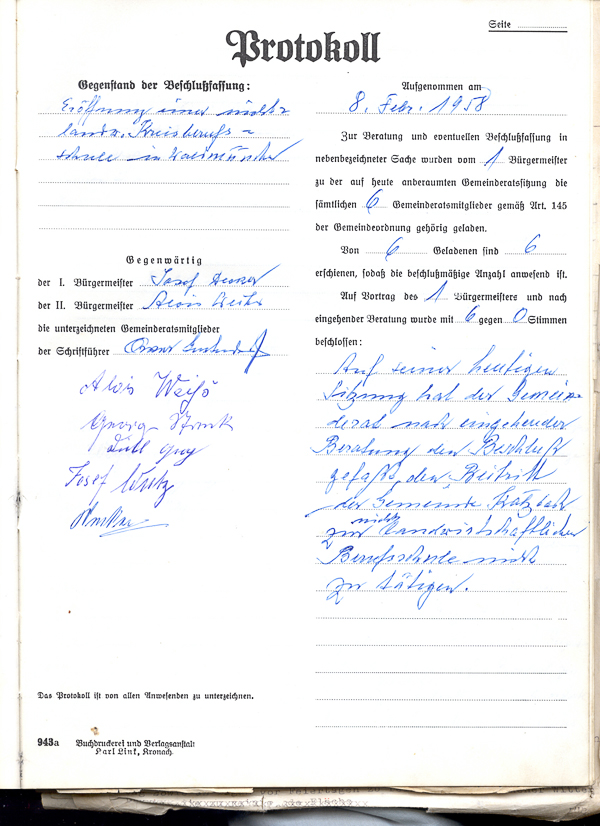 Seite
Protokoll
Gegenstand der Beschlußfassung:
Eröffnung einer nicht
landw. Kreisberufs=
schule in Waldmünchen
Gegenwärtig
der I. Bürgermeister Josef
der II. Bürgermeister Alois Weiß
die unterzeichneten Gemeinderatsmitglieder
der Schriftführer
Alois Weiß
Georg
Josef
Das Protokoll ist von allen Anwesenden zu unterzeichnen.
943a Buchdruckerei und Verlagsanstalt
Carl Link, Kronach.
Aufgenommen am
8. Febr. 1958
Zur Beratung und eventuellen Beschlußfassung in
nebenbezeichneter Sache wurden vom 1 Bürgermeister
zu der auf heute anberaumten Gemeinderatssitzung die
sämtlichen 6 Gemeinderatsmitglieder gemäß Art. 145
der Gemeindeordnung gehörig geladen.
Von 6 Geladenen sind 6
erschienen, sodaß die beschlußmäßige Anzahl anwesend ist.
Auf Vortrag des 1 Bürgermeisters und nach
eingehender Beratung wurde mit 6 gegen 0 Stimmen
beschlossen:
Auf seiner heutigen
Sitzung hat der Gemein=
derat nach eingehender
Beratung den Beschluß
gefaßt, den Beitritt
der Gemeinde Katzbach
zur nicht Landwirtschaftlichen
Berufsschule nicht
zu tätigen.